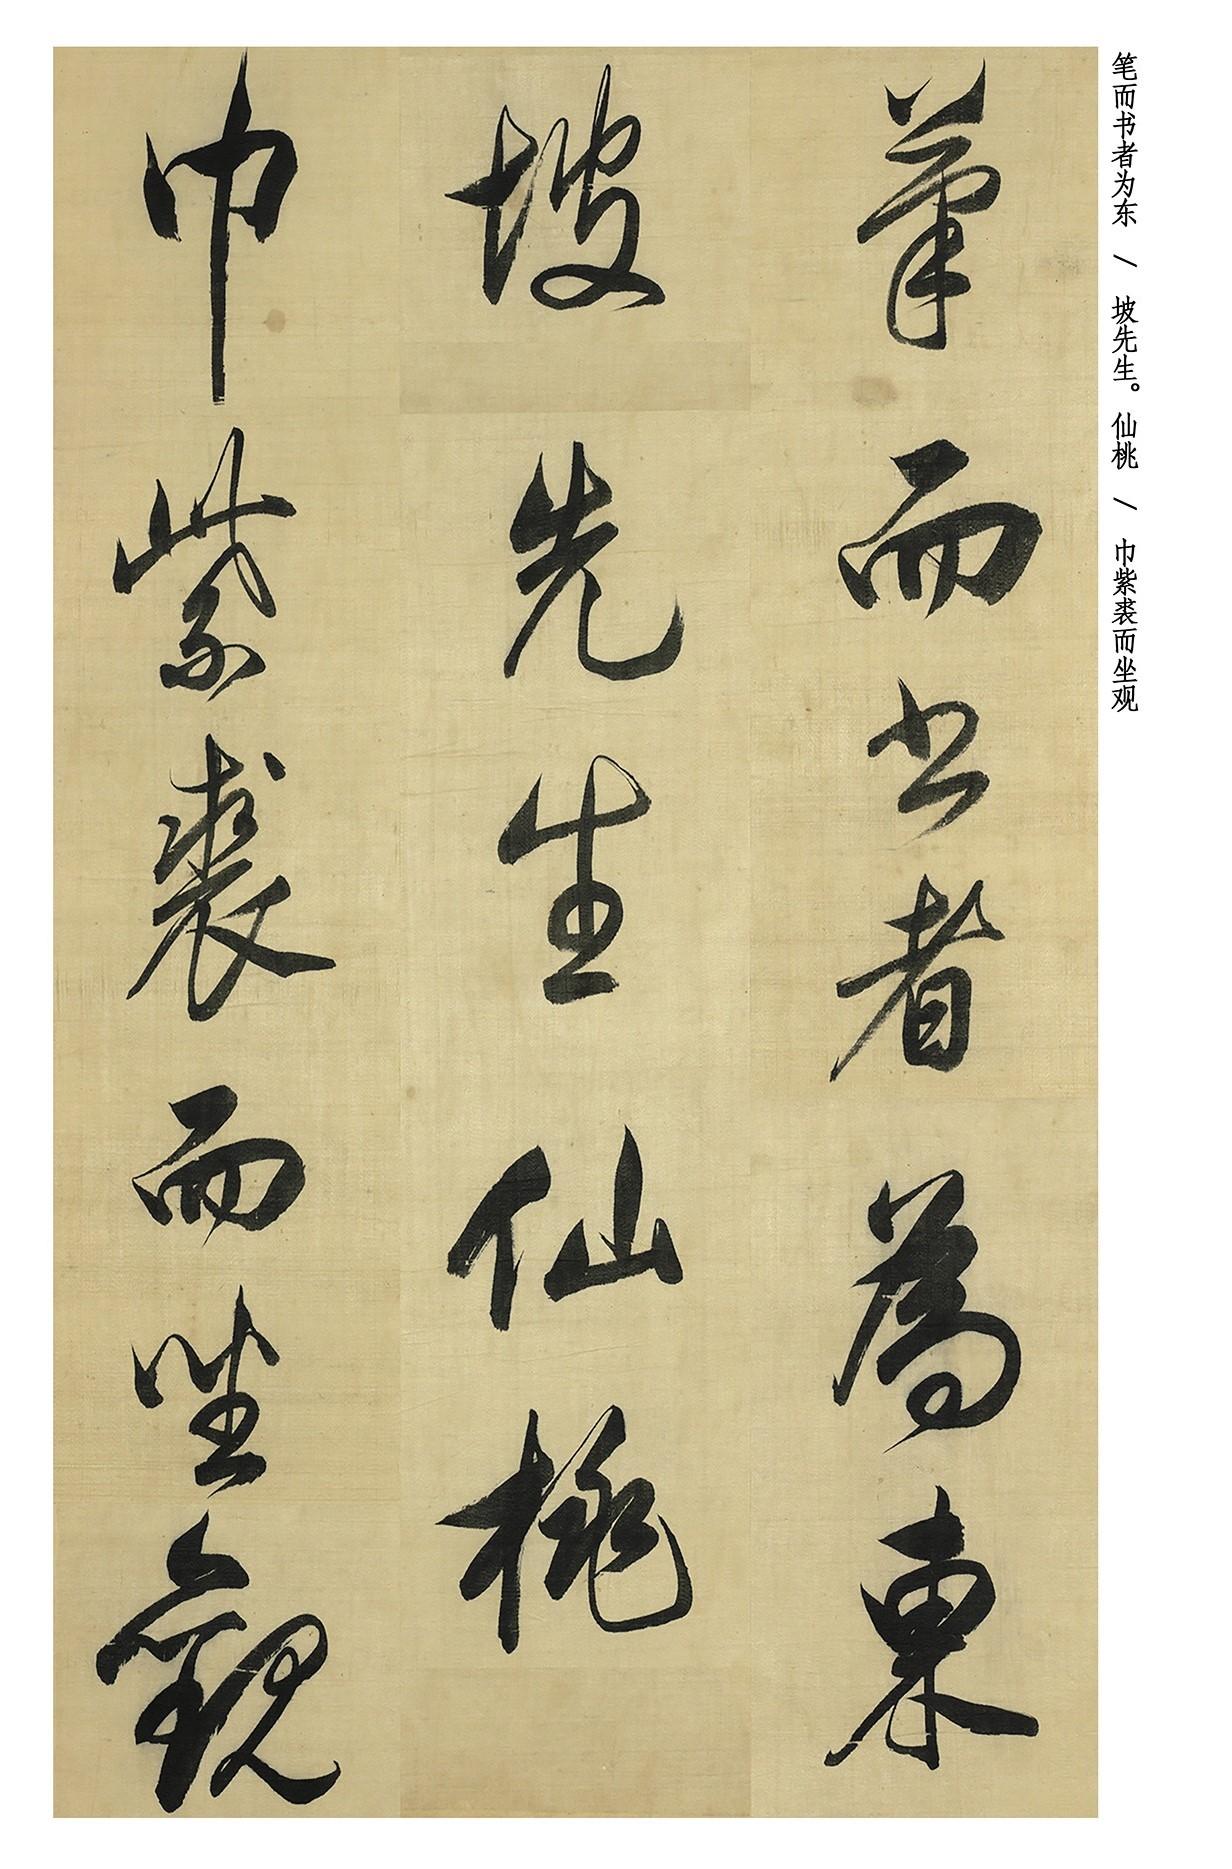 笔而书者为东 / 坡先生。仙桃 / 巾紫裘而坐观
筆而書者為東
坡先生仙桃
巾紫裘而坐觀